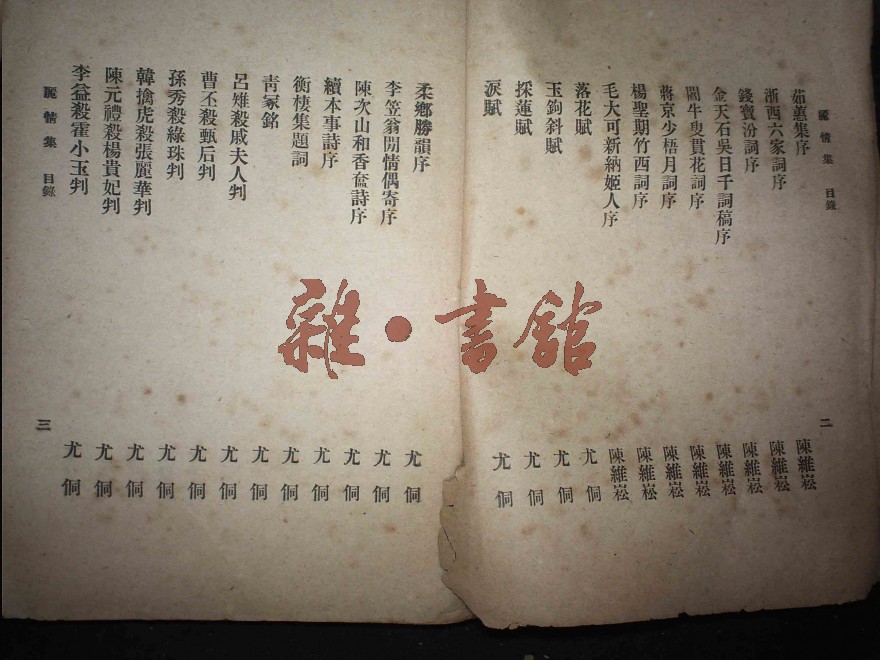 麗情集 目錄 二
茹蕙集序 陳維崧
浙西六家詞序 陳維崧
錢寶汾詞序 陳維崧
金天石吳日千詞稿序 陳維崧
閻牛叟貫花詞序 陳維崧
蔣京少梧月詞序 陳維崧
楊聖期竹西詞序 陳維崧
毛大可新納姬人序 陳維崧
落花賦 尤侗
玉鉤斜賦 尤侗
採蓮賦 尤侗
淚賦 尤侗
柔鄉勝韻序 尤侗
李笠翁閒情偶寄序 尤侗
陳次山和香奩詩序 尤侗
續本事詩序 尤侗
衡棲集題詞 尤侗
青冢銘 尤侗
呂雉殺戚夫人判 尤侗
曹丕殺甄后判 尤侗
孫秀殺綠珠判 尤侗
韓擒虎殺張麗華判 尤侗
陳元禮殺楊貴妃判 尤侗
李益殺霍小玉判 尤侗
麗情集 目錄 三
雜·書館